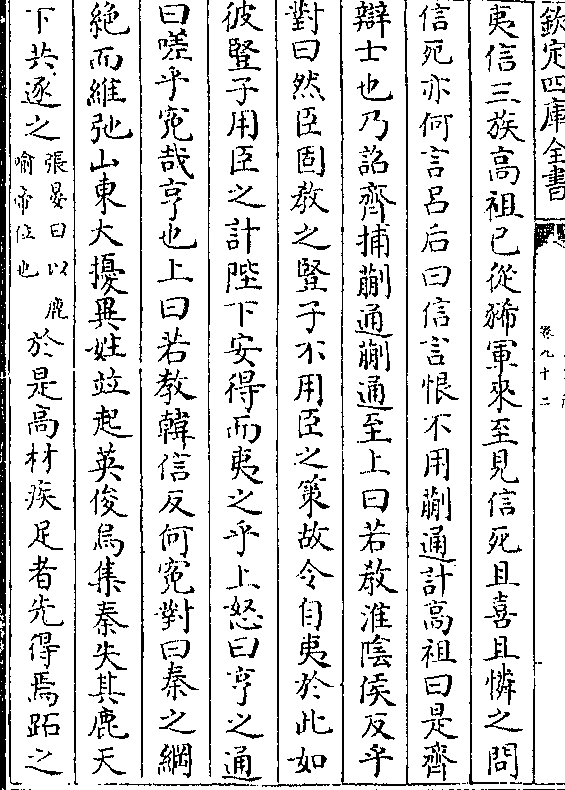 欽定四庫全書
卷九十二
夷信三族高祖已從豨軍來至見信死且喜且憐之問
信死亦何言呂后曰信言恨不用蒯通計高祖曰是齊
辯士也乃詔齊捕蒯通蒯通至上曰若教淮陰侯反乎
對曰然臣固教之豎子不用臣之策故令自夷於此如
彼豎子用臣之計陛下安得而夷之乎上怒曰亨之通
曰嗟乎寃哉亨也上曰若教韓信反何寃對曰秦之綱
絶而維弛山東大擾異姓竝起英俊烏集秦失其鹿天
下共逐之張晏曰以鹿喻帝位也於是高材疾足者先得焉跖之